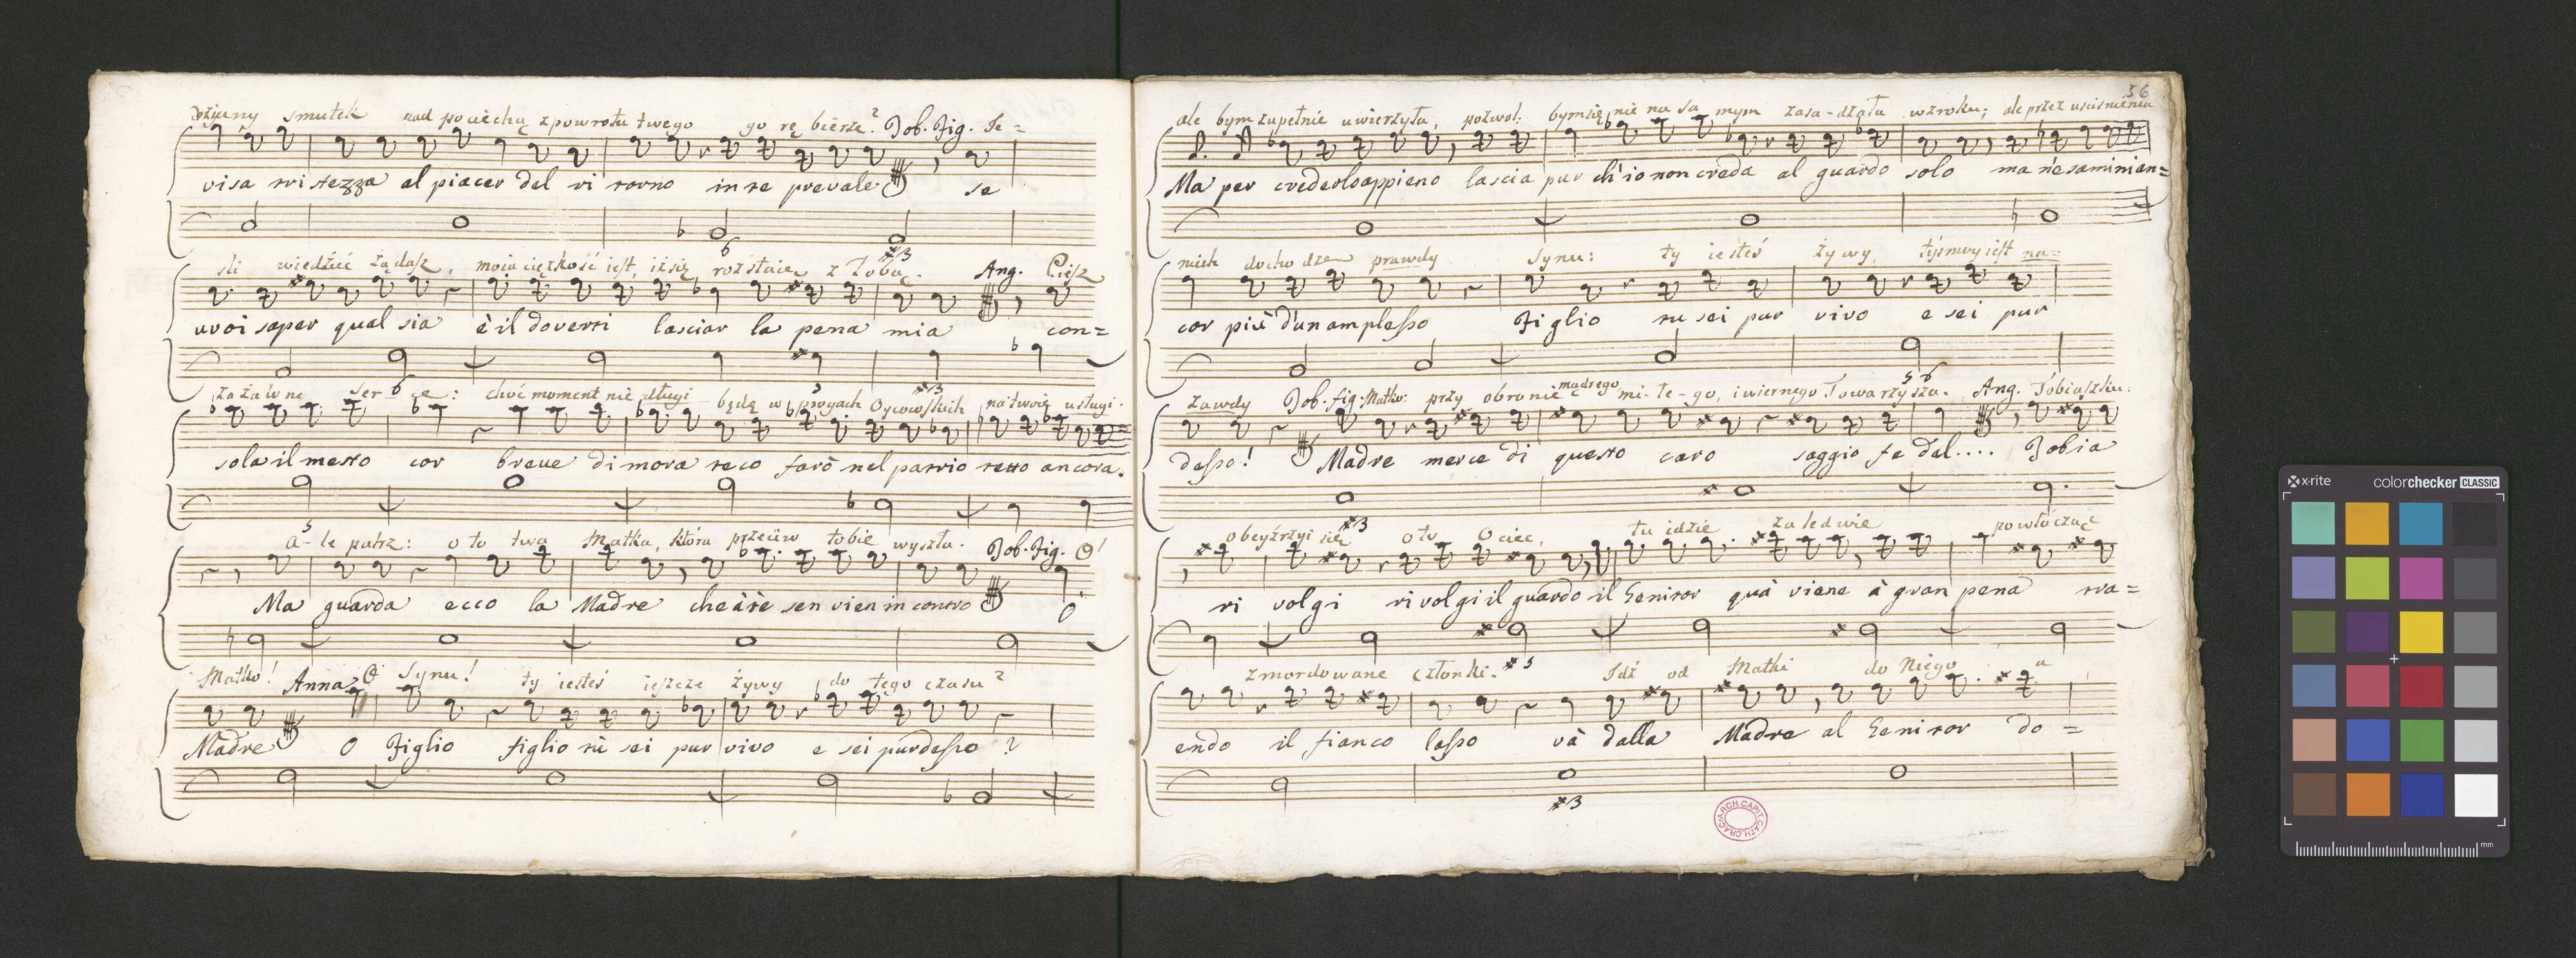 smutek nad pociechą z powrotu twego go rę bierze? Tob. Fig. Je=
visa tristezza al piacer del ritorno in te prevale se
sli wiedzieć żądasz, moia ciężkość iest, iż się rozstaię z Tobą. Ang. Ciesz
vuoi saper qual sia è il doverti lasciar la pena mia con=
6 ♯3
zażawne Serce: choć moment nie długi będę w progach Oycowskich na twoię usługi.
sola il mesto cor breve dimora teco farò nel patrio tetto ancora.
6 5 ♯3
a-le patrz: oto twa Matka, która przeciw tobie wyszła. Tob. Fig. O!
Ma guarda ecco la Madre che à tè sen vien incontro O
5
Matko! Anna O Synu! ty iesteś ieszcze żywy do tego czasu?
Madre O Figlio figlio tù sei pur vivo e sei pur desso?
56
ale bym zupełnie uwierzyła, pozwol: bym się nie na samym zasa-dzała wzroku; ale przez uscisnienia
Ma per crederlo appieno lascia pur ch'io non creda al guardo solo ma n'esamini an=
niech dochodzę prawdy Synu: ty iesteś żywy, tyś moy iest na=
cor più d'un amplesso Figlio tu sei pur vivo e sei pur
zawdy Tob. fig: Matko: przy obronie mądrego mi-łe-go, i wiernego Towarzysza. Ang. Tobiaszku:
desso! Madre merce di questo caro saggio fedel.... Tobia
5 6
obeyźrzyi się oto Ociec, tu idzie za ledwie powłocząc
ti volgi rivolgi il guardo il Genitor quà viene à gran pena tra=
♯3
zmordowane członki. Idź od Matki do Niego a
endo il fianco lasso và dalla Madre al Genitor do=
♯5
♯3
ARCH.CAPIT.CATH.CRAC.
x-rite colorchecker CLASSIC
mm